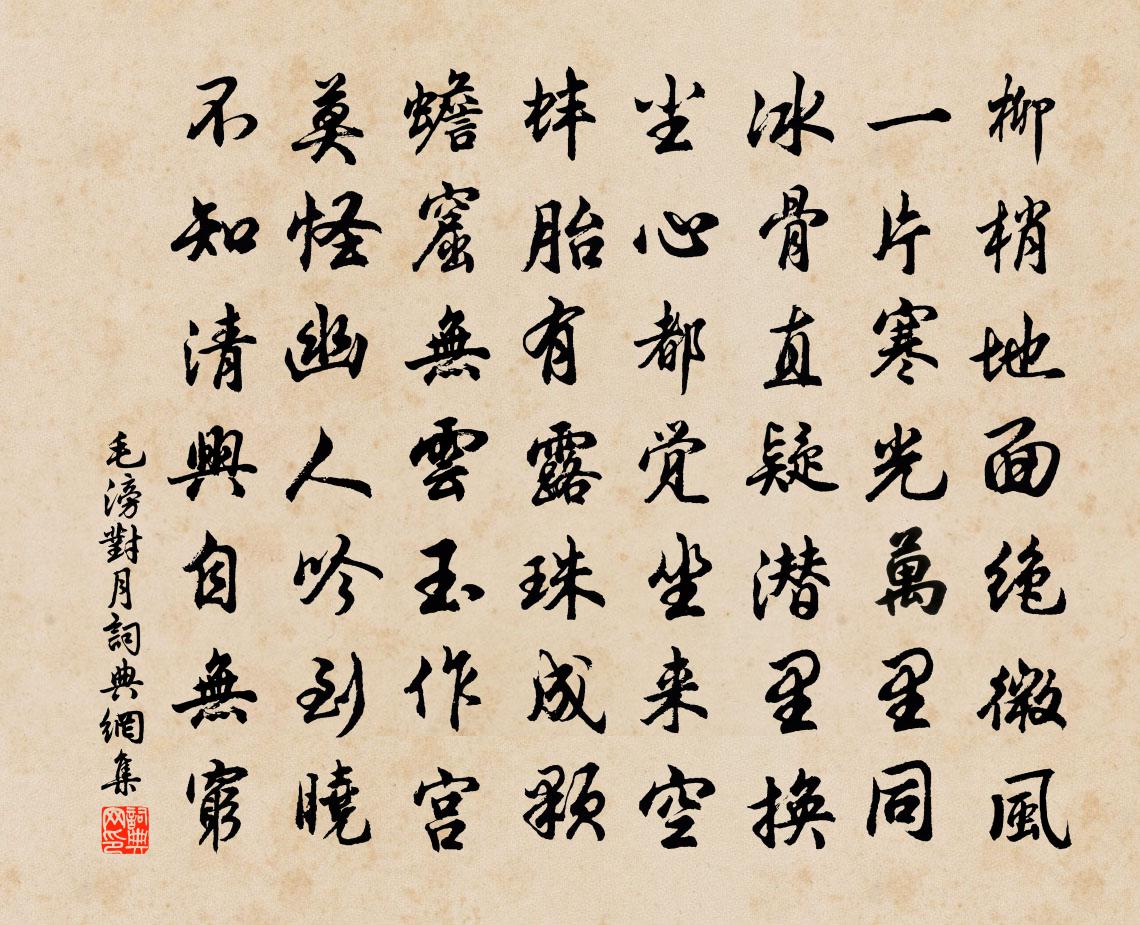 柳梢地面絶微風
一片寒光萬里同
冰骨直疑潜里換
尘心都覺坐来空
蚌胎有露珠成顆
蟾窟無雲玉作宫
莫怪幽人吟到曉
不知清興自無窮
毛滂對月詞典網集
詞典网印